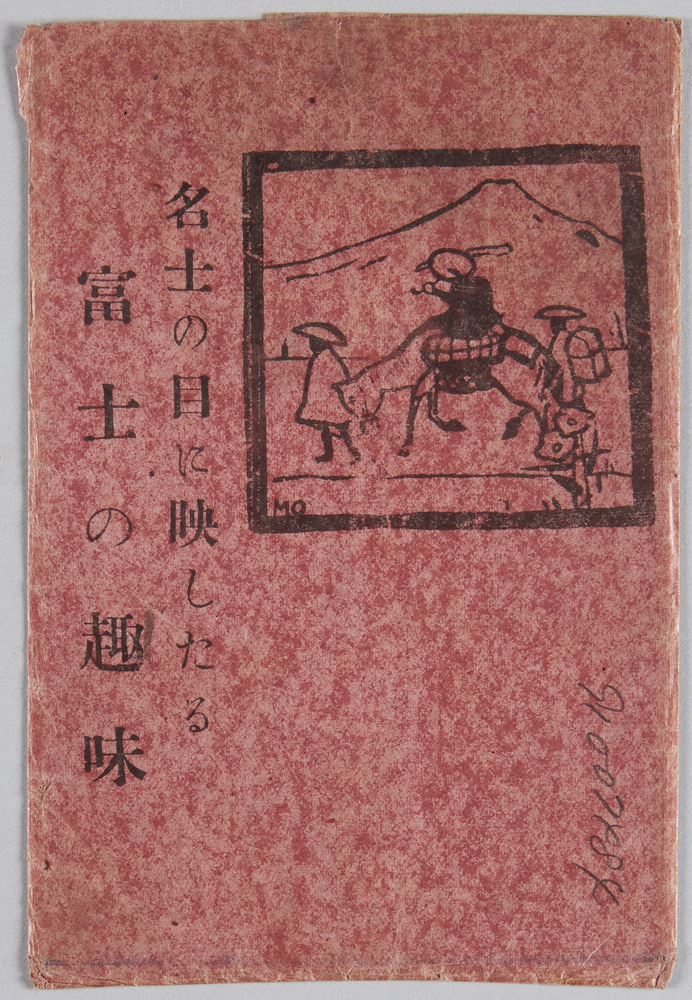 名士の目に映したる
富士の趣味
MO